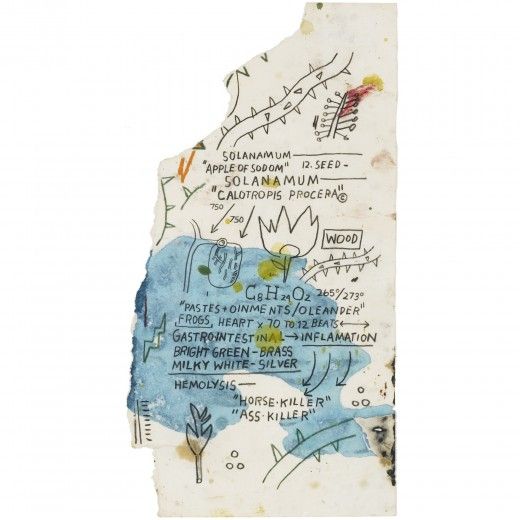 SOLANAMUM
"APPLE OF SODOM" 12. SEED-
SOLANAMUM
"CALOTROPIS PROCERA" ©
750
750
WOOD
C8H24O2 265°/273°
"PASTES + OINMENTS/OLEANDER"
FROGS, HEART x 70 TO 12 BEATS
GASTROINTESTINAL → INFLAMATION
BRIGHT GREEN-BRASS
MILKY WHITE-SILVER
HEMOLYSIS—
"HORSE·KILLER"
"ASS·KILLER"